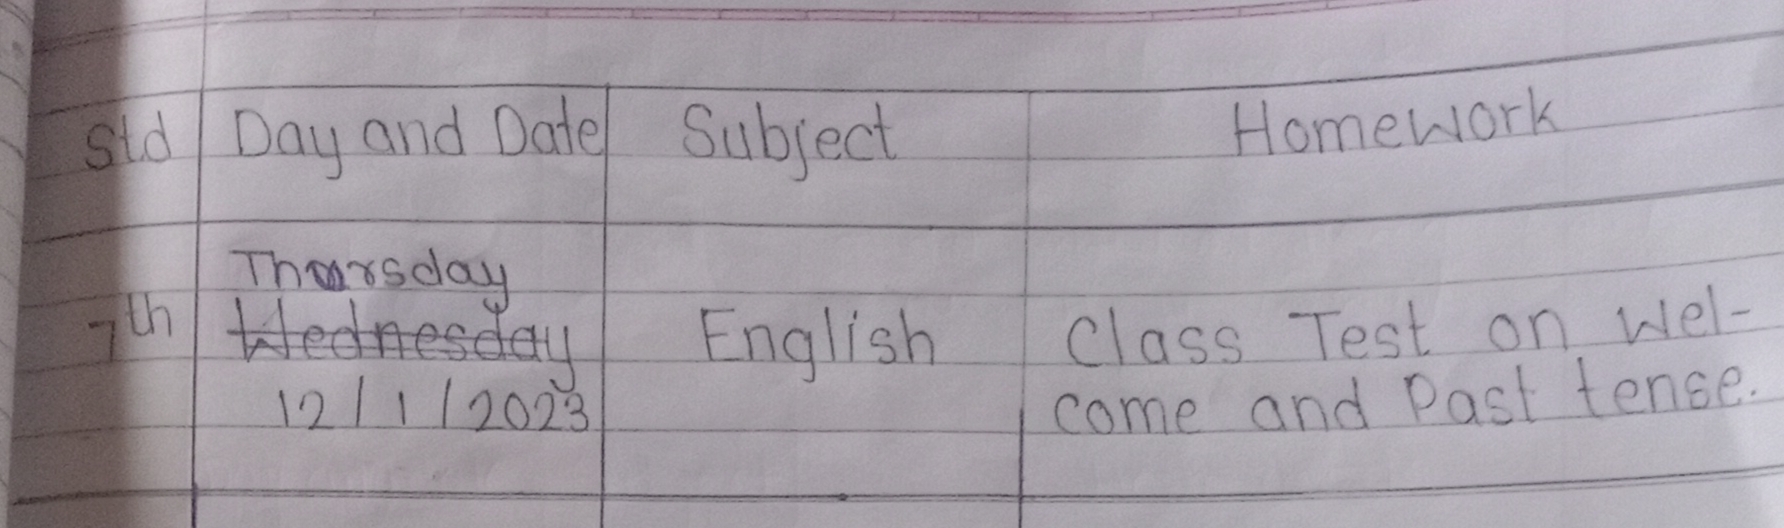 Std Day and Date Subject Homework
Thursday
7th Wednesday English Class Test on Wel-
12/1/2023 come and Past tense.